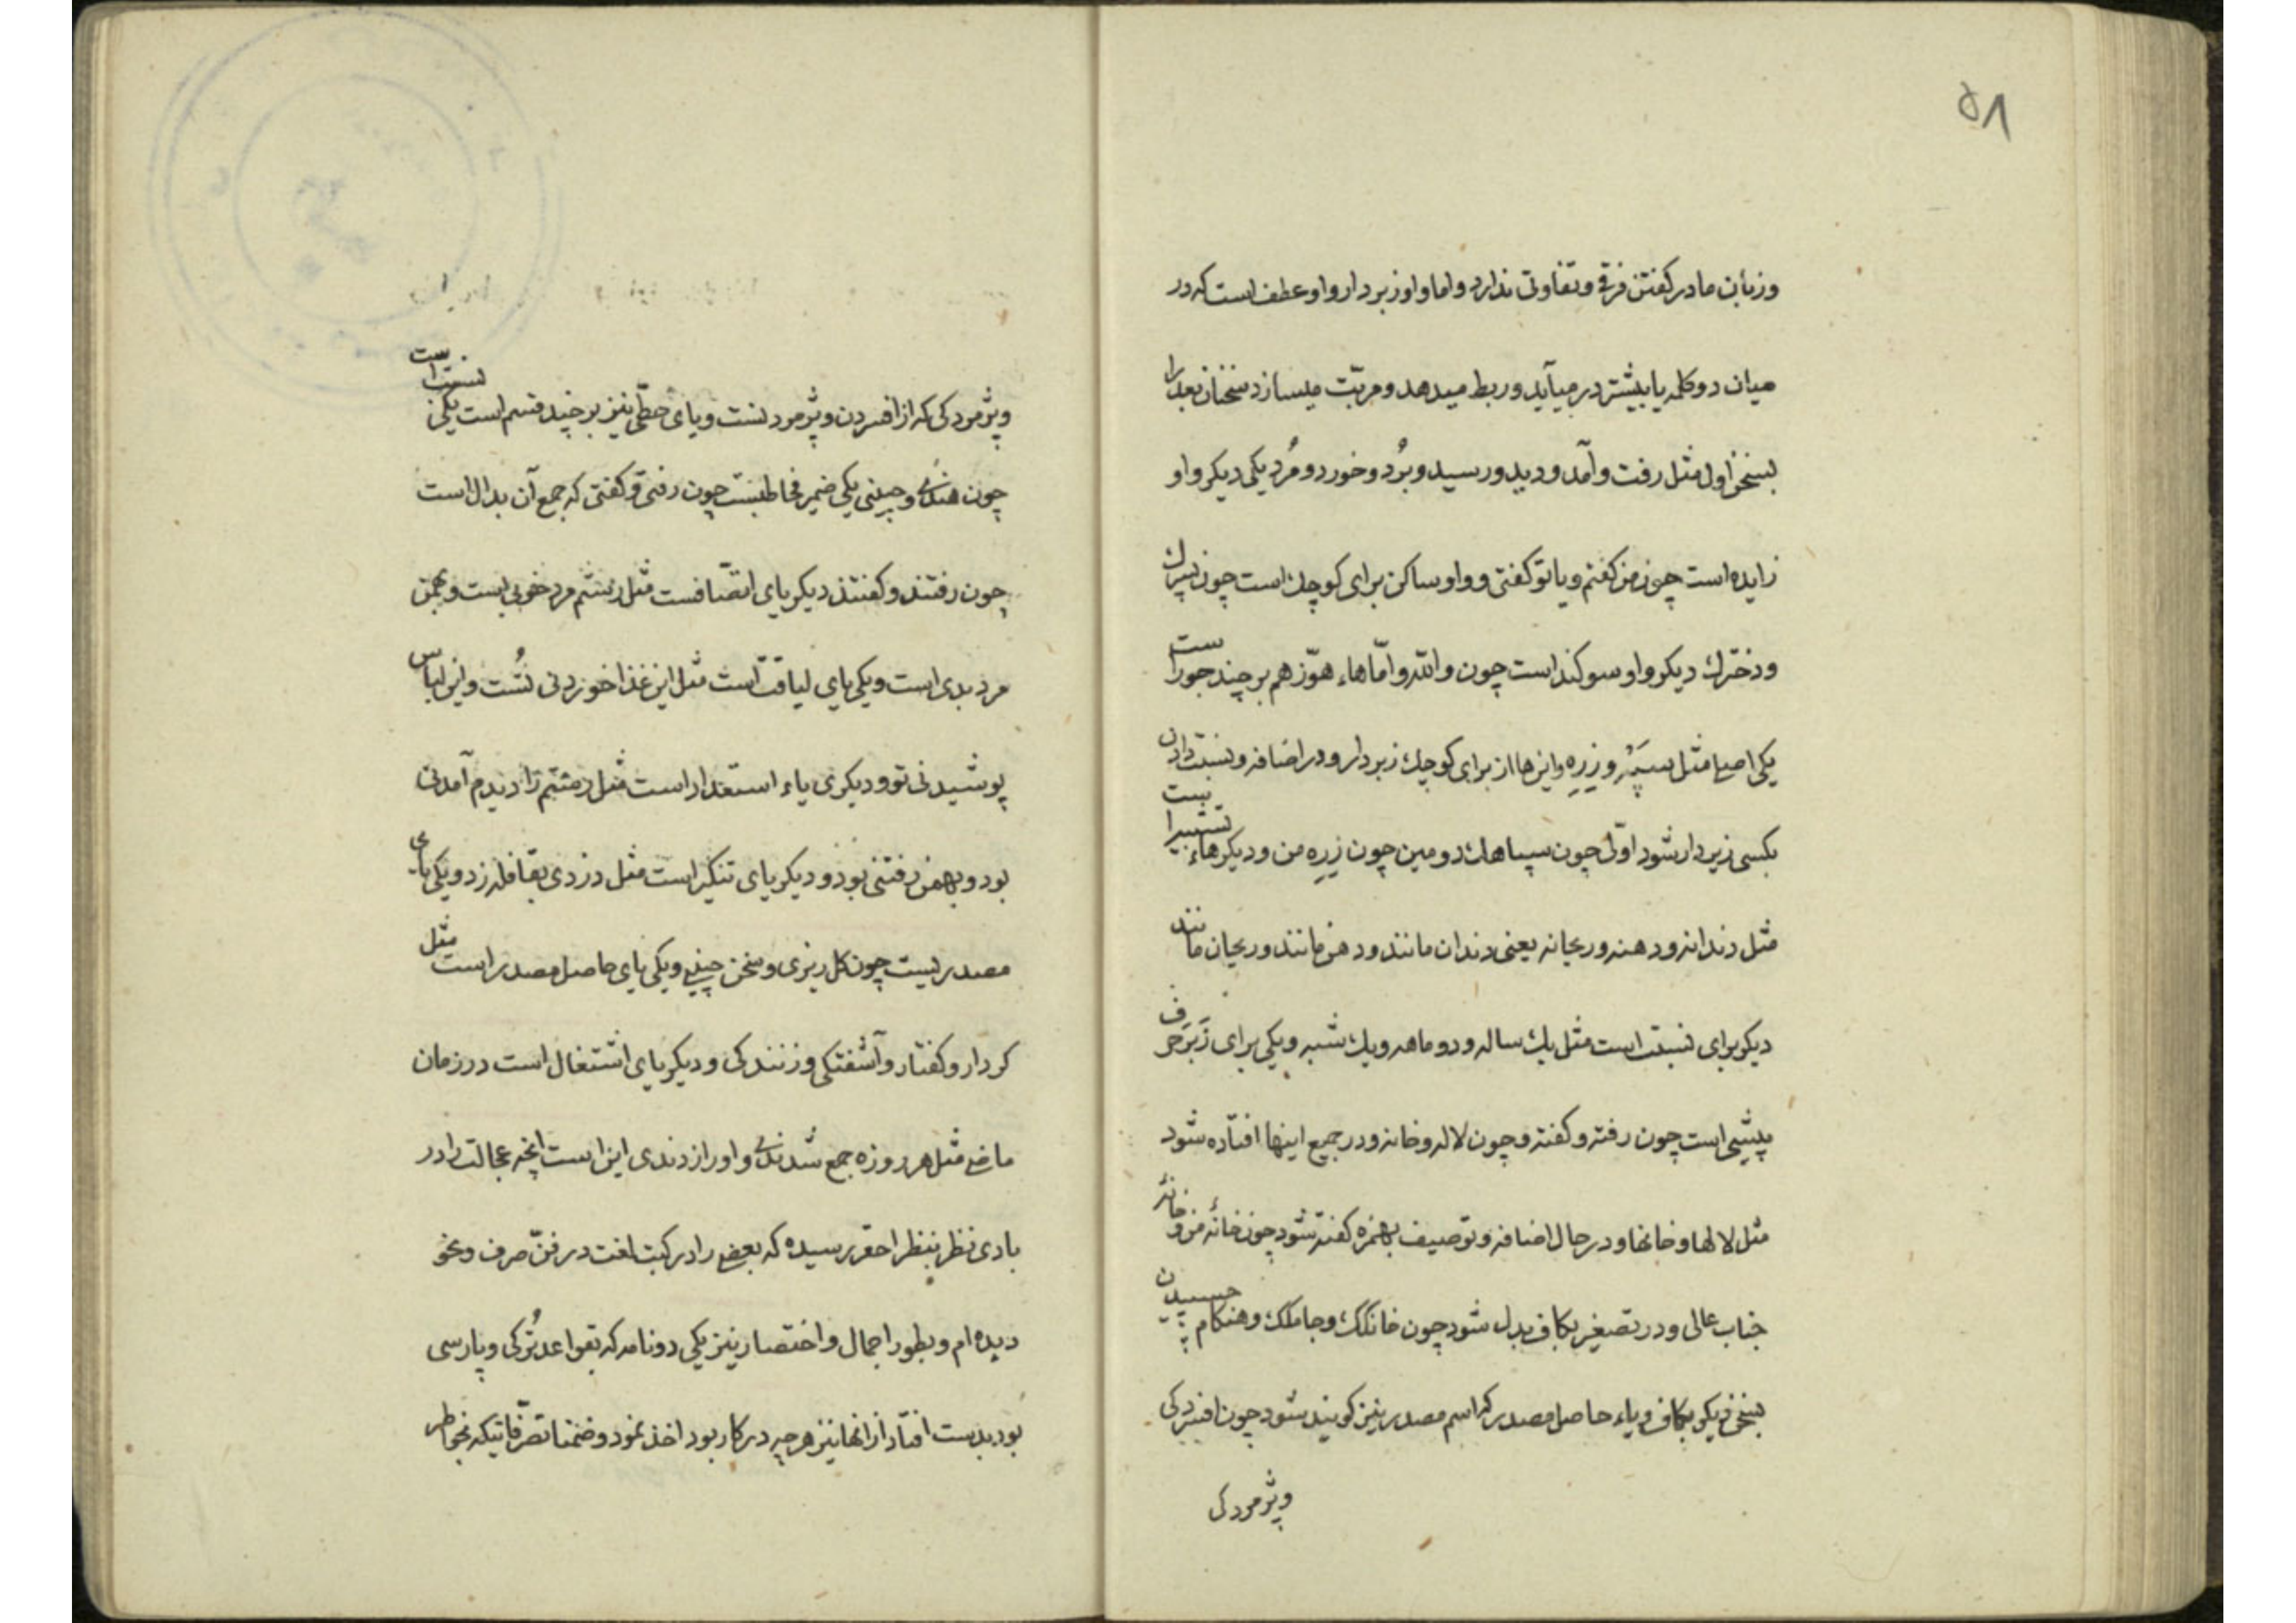 ۵۸
وزبان ما در کفتن فرقی و تفاوتی ندارد و اما واو زبردار واو عطف است که در
میان دو کلمه یا بیشتر در میآید و ربط میدهد و مرتب میسازد سخنان بعد را
بسخن اول مثل رفت و آمد و دید و رسید و بُرد و خورد و مُرد یکی دیکر واو
زایده است چون من کفتم و یا تو کفتی و واو ساکن برای کوچك است چون پسرك
و دخترك دیکر واو سوکند است چون والله و امّا هاء هوّز هم بر چند جور است
یکی اصلی مثل سپَه و زِرِه و اینها از برای کوچك زبردار و در اضافه و نسبت دادن
بکسی زیردار شود اوّلی چون سپاهك دومین چون زِرِه من و دیکر هاء
مثل دندانه و دهنه و ریحانه یعنی دندان مانند و دهن مانند و ریحان مانند
دیکر برای نسبت است مثل یك ساله و دو ماهه و یك شبه و یکی برای زَبَر حرف
پیشی است چون رفته و کفته و چون لاله و خانه و در جمیع اینها افتاده شود
مثل لالها و خانها و در حال اضافه و توصیف بهمزه کفته شود چون خانهٔ من و خانهٔ
جناب عالی و در تصغیر بکاف بدل شود چون خانکك و جامكك و هنکام چسپیدن
بسخن دیکر بکاف و یاء حاصل مصدر که اسم مصدر نیز کویند شود چون افسردکی
وپژمردکی
وپژمردکی که از افسردن و پژمردنست و یای حطّی نیز بر چند قسم است یکی نسبت است
چون هندی و چینی یکی ضمیر مخاطبست چون رفتی و کفتی که جمع آن بدال است
چون رفتند و کفتند دیکر یای اتصافست مثل رستم مرد خوبی است و بهمن
مرد بدی است و یکی یای لیاقت است مثل این غذا خوردنی تُست و این لباس
پوشیدنی تو و دیکری یاء استعداد است مثل رستم را دیدم آمدنی
بود و بهمن رفتنی بود و دیکر یای تنکیر است مثل دزدی بقافله زد و یکی یای
مصدریست چون کل ریزی و سخن چینی و یکی یای حاصل مصدر است مثل
کردار و کفتار و آشفتکی و زنندکی و دیکر یای اشتغال است در زمان
ماضی مثل هر روزه جمع شدندی و او را زدندی این است آنچه عجالت را در
بادی نظر بنظر احقر رسیده که بعضی را در کتب لغت در فنّ صرف و نحو
دیده ام و بطور اجمال و اختصار نیز یکی دو نامه که بقواعد تُرکی و پارسی
بود بدست افتاد از انها نیز هر چه در کار بود اخذ نمود و ضمنا تصرّفاتیکه بخواطر